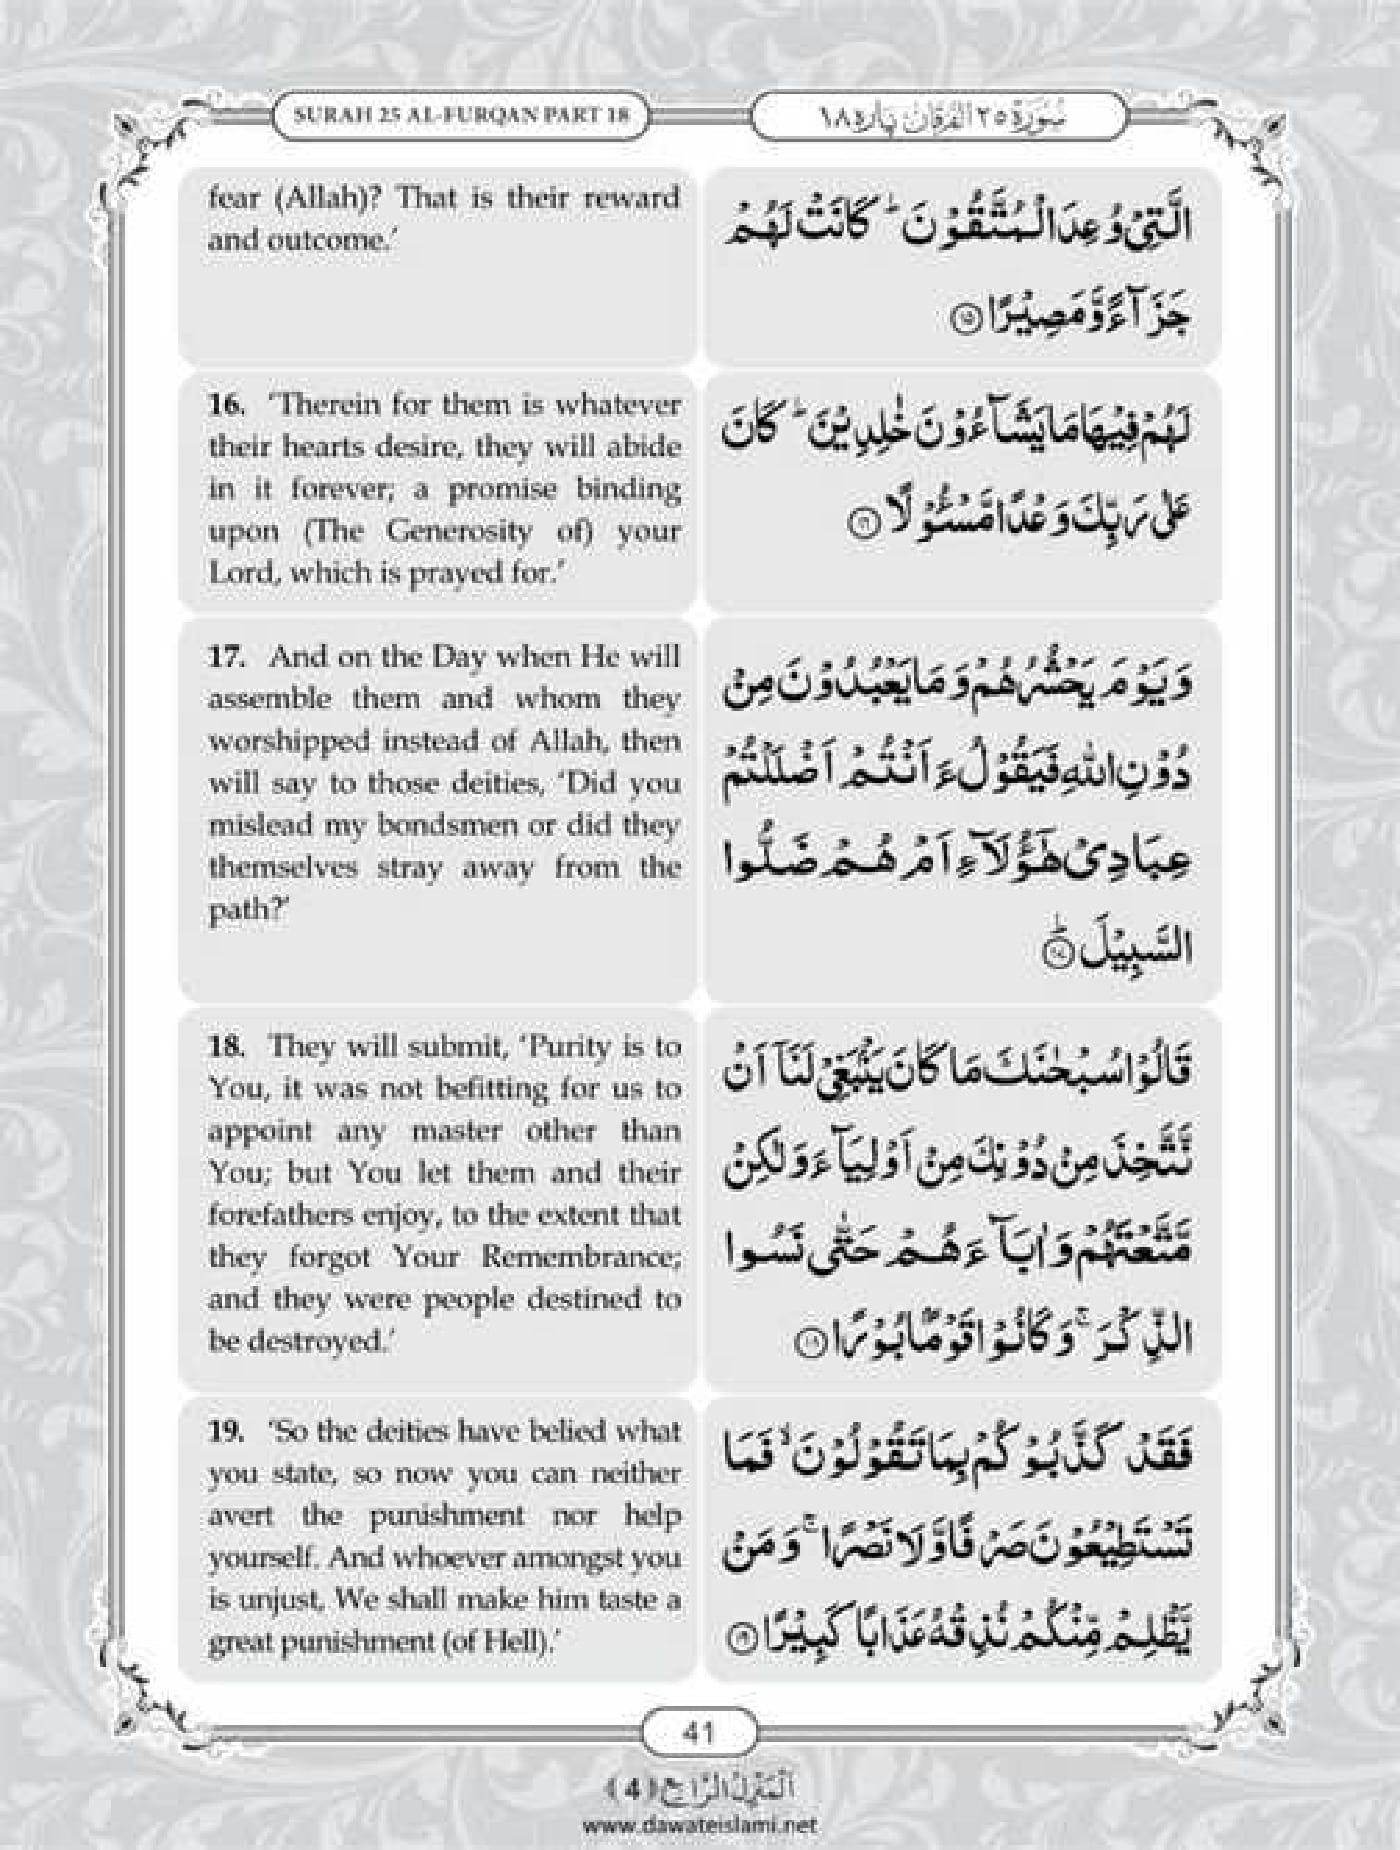 SURAH 25 AL-FURQAN PART 18
سُوْرَةُ ٢٥ الْفُرْقَان پارہ ١٨
fear (Allah)? That is their reward
and outcome.’
الَّتِیْ وُعِدَ الْمُتَّقُوْنَ ؕ كَانَتْ لَهُمْ
جَزَآءً وَّ مَصِیْرًا ۝۱۵
16. ‘Therein for them is whatever
their hearts desire, they will abide
in it forever; a promise binding
upon (The Generosity of) your
Lord, which is prayed for.’
لَهُمْ فِیْهَا مَا یَشَآءُوْنَ خٰلِدِیْنَ ؕ كَانَ
عَلٰی رَبِّكَ وَعْدًا مَّسْـُٔوْلًا ۝۱۶
17. And on the Day when He will
assemble them and whom they
worshipped instead of Allah, then
will say to those deities, ‘Did you
mislead my bondsmen or did they
themselves stray away from the
path?’
وَ یَوْمَ یَحْشُرُهُمْ وَ مَا یَعْبُدُوْنَ مِنْ
دُوْنِ اللّٰهِ فَیَقُوْلُ ءَاَنْتُمْ اَضْلَلْتُمْ
عِبَادِیْ هٰۤؤُلَآءِ اَمْ هُمْ ضَلُّوا
السَّبِیْلَ ؕ۝۱۷
18. They will submit, ‘Purity is to
You, it was not befitting for us to
appoint any master other than
You; but You let them and their
forefathers enjoy, to the extent that
they forgot Your Remembrance;
and they were people destined to
be destroyed.’
قَالُوْا سُبْحٰنَكَ مَا كَانَ یَنْۢبَغِیْ لَنَاۤ اَنْ
نَّتَّخِذَ مِنْ دُوْنِكَ مِنْ اَوْلِیَآءَ وَ لٰكِنْ
مَّتَّعْتَهُمْ وَ اٰبَآءَهُمْ حَتّٰی نَسُوا
الذِّكْرَ ۚ وَ كَانُوْا قَوْمًۢا بُوْرًا ۝۱۸
19. ‘So the deities have belied what
you state, so now you can neither
avert the punishment nor help
yourself. And whoever amongst you
is unjust, We shall make him taste a
great punishment (of Hell).’
فَقَدْ كَذَّبُوْكُمْ بِمَا تَقُوْلُوْنَ ۙ فَمَا
تَسْتَطِیْعُوْنَ صَرْفًا وَّ لَا نَصْرًا ۚ وَ مَنْ
یَّظْلِمْ مِّنْكُمْ نُذِقْهُ عَذَابًا كَبِیْرًا ۝۱۹
41
اَلْمَنْزِلُ الرَّابِع ﴿4﴾
www.dawateislami.net